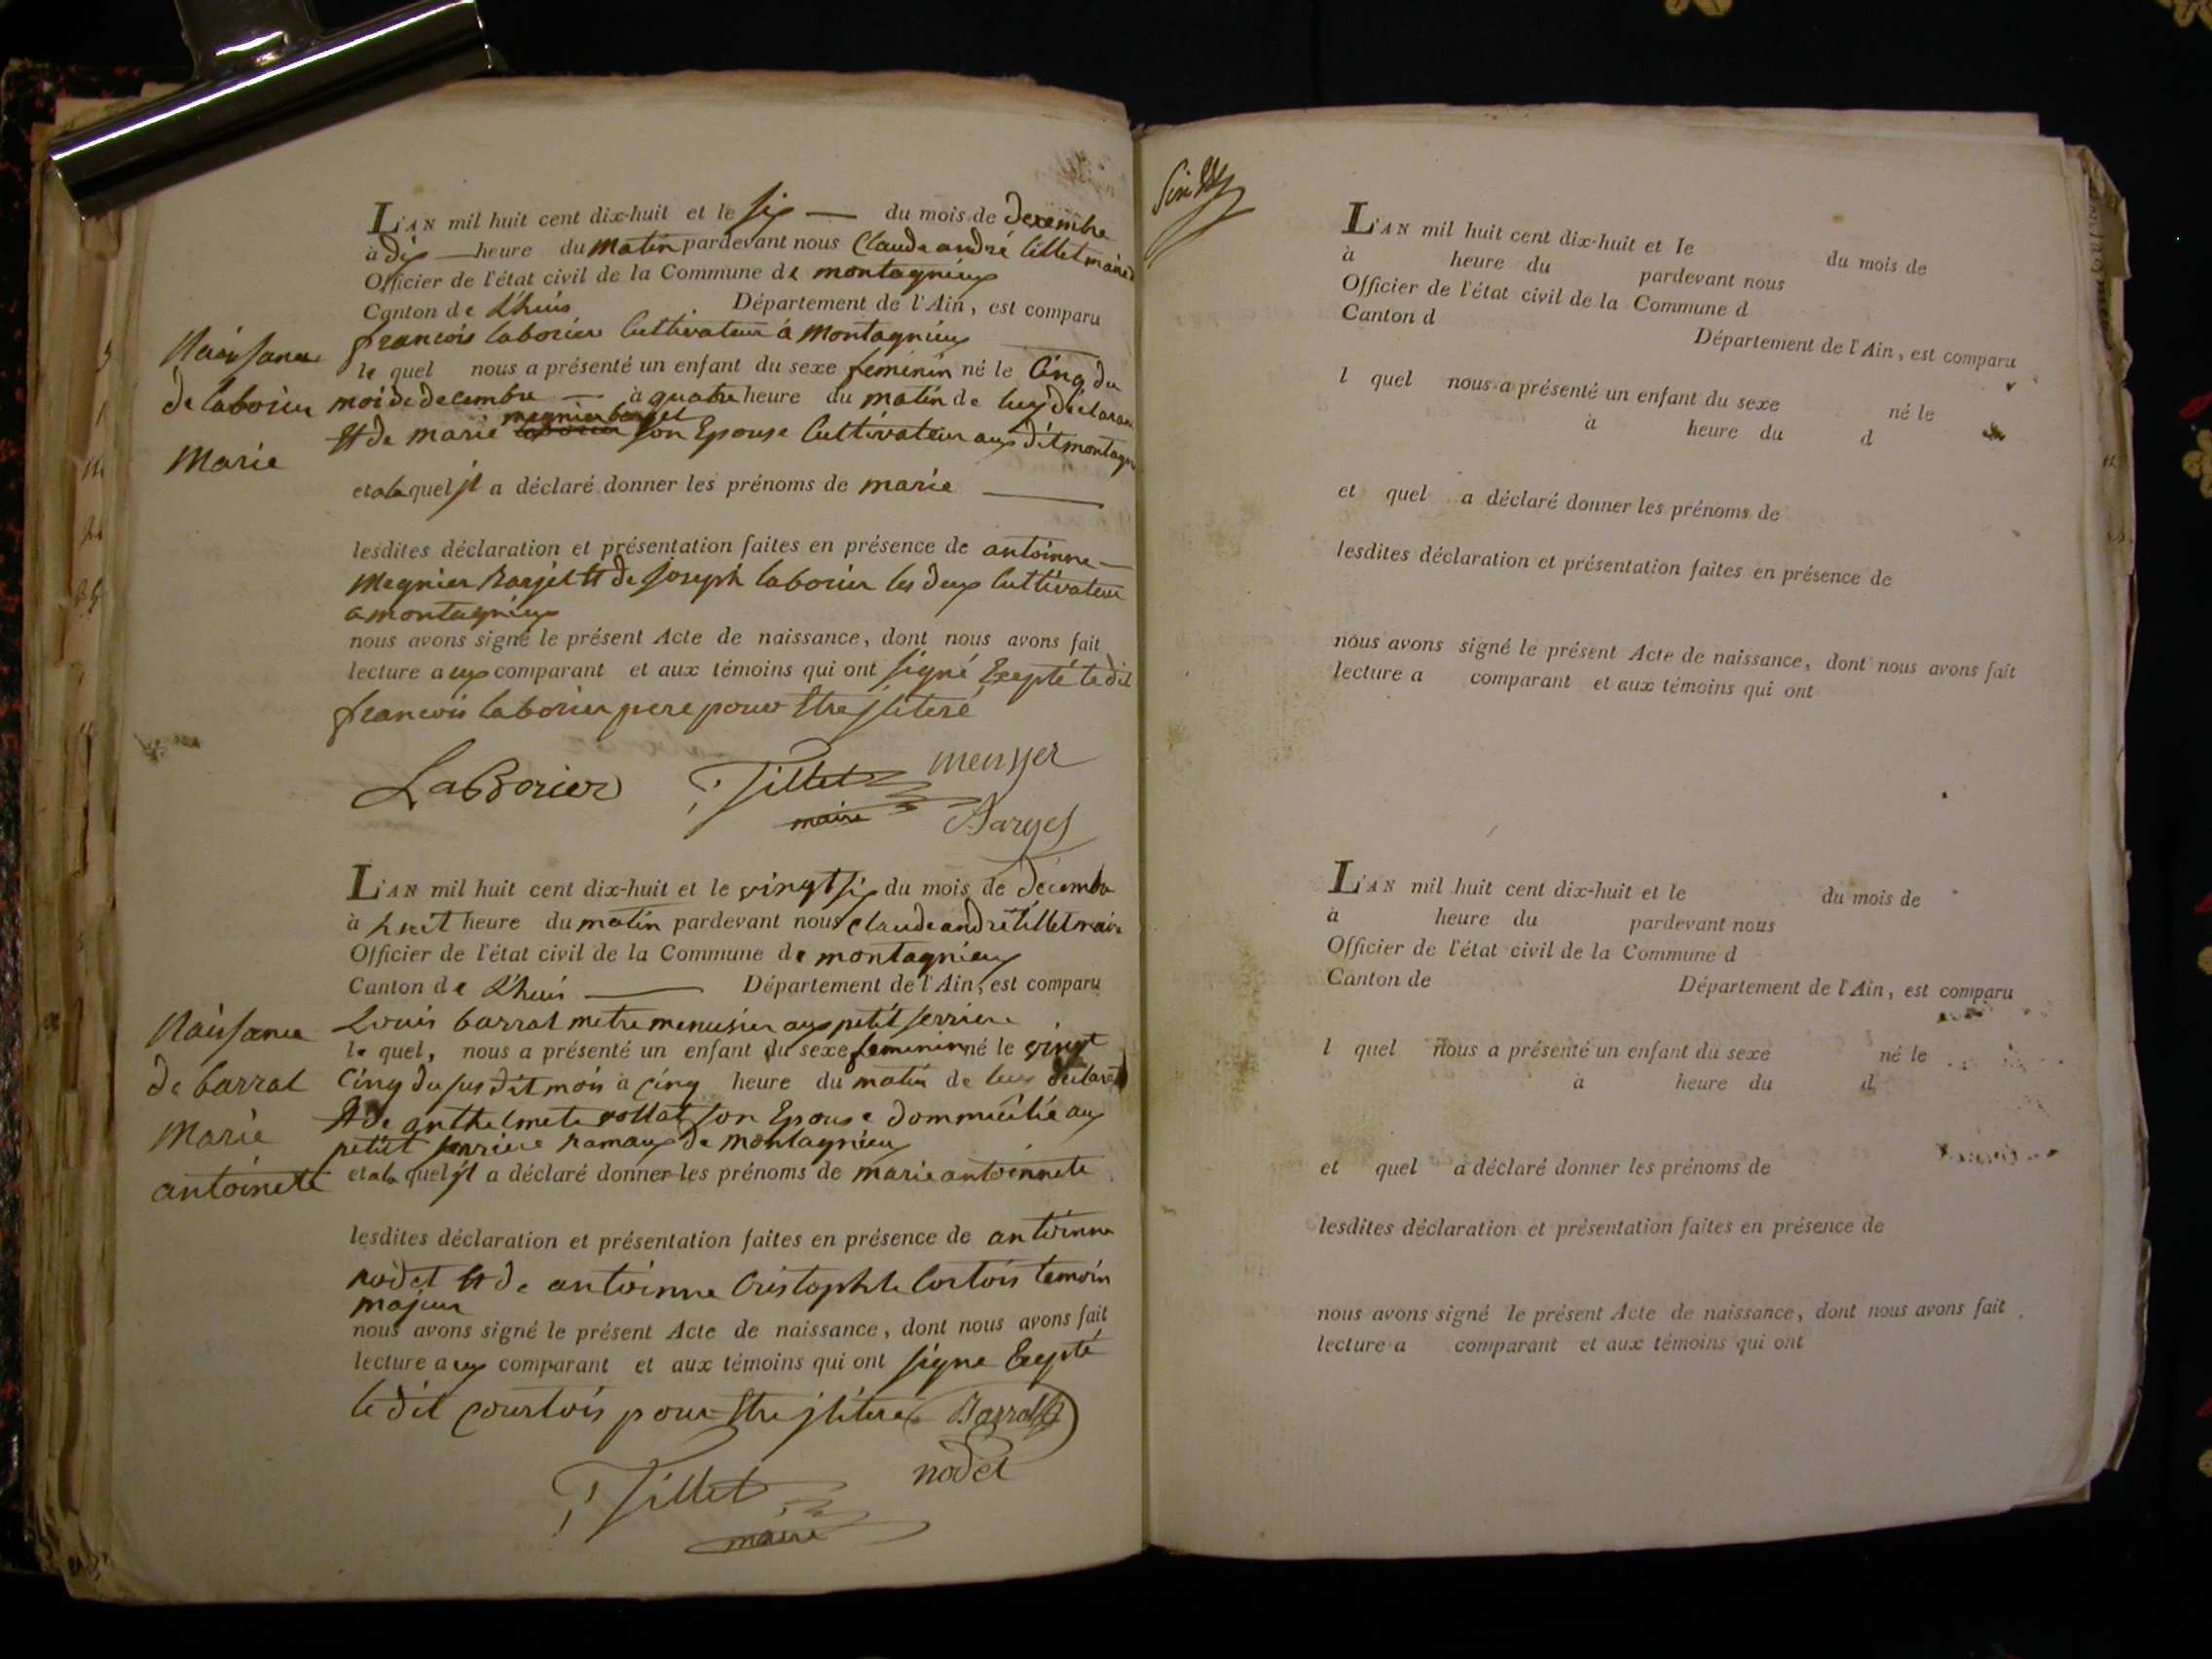 L'AN mil huit cent dix-huit et le six du mois de decembre
à dix heure du matin pardevant nous Claude andré tillet maire
Officier de l'état civil de la Commune de montagnieux
Canton de L'huis Département de l'Ain, est comparu
francois laborier Cultivateur á Montagnieux
le quel nous a présenté un enfant du sexe feminin né le Cinq du
moi de decembre à quatre heure du matin de luy déclarant
Et de marie megnier barjet son Epouse Cultivateur aux dit montagn
et a la quel jl a déclaré donner les prénoms de marie
lesdites déclaration et présentation faites en présence de antoinne
Megnier Barjet Et de Joseph laborier les deux Cultivateur
a montagnieux
nous avons signé le présent Acte de naissance, dont nous avons fait
lecture a ux comparant et aux témoins qui ont signé Exepté le dit
francois laborier pere pour Etre jliteré
Naissance
de laborier
Marie
LaBorier Tillet
maire
Barjet
L'AN mil huit cent dix-huit et le vingt six du mois de décembre
à huit heure du matin pardevant nous claude andré tillet maire
Officier de l'état civil de la Commune de montagnieux
Canton de L'huis Département de l'Ain, est comparu
Louis barral metre menusier aux petit serriere
le quel, nous a présenté un enfant du sexe feminin né le vingt
Cinq du sus dit mois à cinq heure du matin de luy déclarant
Et de anthelmete vollat son Epouse dommicilié aux
petit serriere hamaux de montagnieux
et a la quel jl a déclaré donner les prénoms de marie antoinnete
lesdites déclaration et présentation faites en présence de antoinne
nodet Et de antoinne Cristophle Cortois temoin
majeur
nous avons signé le présent Acte de naissance, dont nous avons fait
lecture a ux comparant et aux témoins qui ont signe Exepté
le dit courtois pour Etre jlitere Barral
nodet
Tillet
maire
Naissance
de barral
Marie
antoinete
L'AN mil huit cent dix-huit et le du mois de
à heure du pardevant nous
Officier de l'état civil de la Commune d
Canton d Département de l'Ain, est comparu
l quel nous a présenté un enfant du sexe né le
à heure du d
et quel a déclaré donner les prénoms de
lesdites déclaration et présentation faites en présence de
nous avons signé le présent Acte de naissance, dont nous avons fait
lecture a comparant et aux témoins qui ont
L'AN mil huit cent dix-huit et le du mois de
à heure du pardevant nous
Officier de l'état civil de la Commune d
Canton de Département de l'Ain, est comparu
l quel nous a présenté un enfant du sexe né le
à heure du d
et quel a déclaré donner les prénoms de
lesdites déclaration et présentation faites en présence de
nous avons signé le présent Acte de naissance, dont nous avons fait
lecture a comparant et aux témoins qui ont